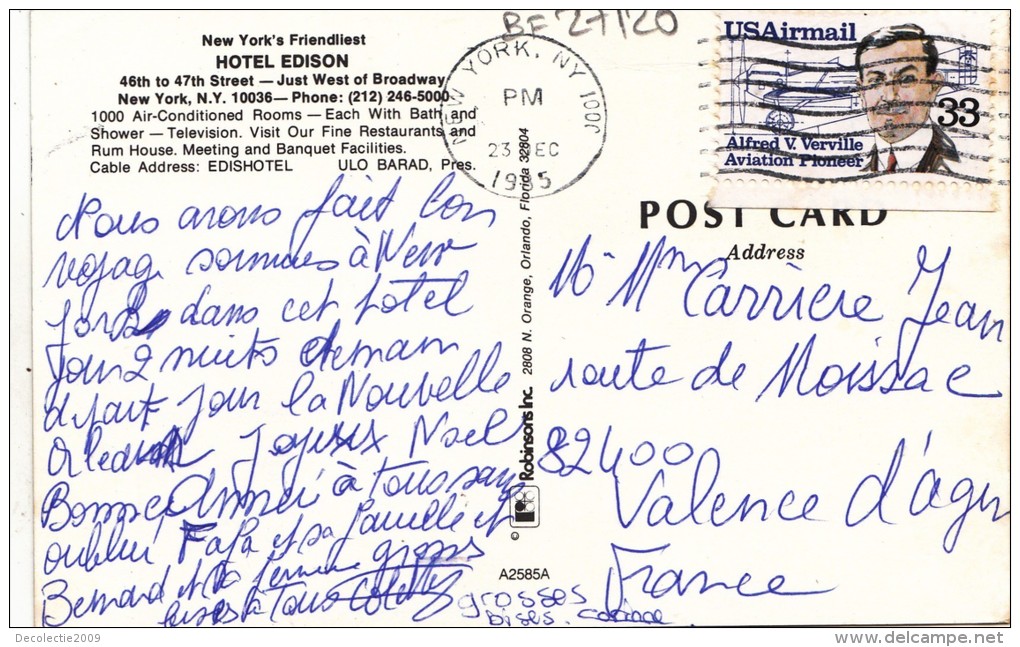 BF 27120
New York's Friendliest
HOTEL EDISON
46th to 47th Street — Just West of Broadway
New York, N.Y. 10036— Phone: (212) 246-5000
1000 Air-Conditioned Rooms — Each With Bath and
Shower — Television. Visit Our Fine Restaurants and
Rum House. Meeting and Banquet Facilities.
Cable Address: EDISHOTEL ULO BARAD, Pres.
NEW YORK, NY 100
PM
23 DEC
1985
USAirmail
33
Alfred V. Verville
Aviation Pioneer
POST CARD
Address
Nous avons fait bon
voyage sommes à New
York dans cet hotel
pour 2 nuits demain
départ pour la Nouvelle
Orléans Joyeux Noel
Bonne Année à tous sans
oublier Papa et sa famille et
Bernard et sa femme gross
bises à tous Colette
grosses
bises.
M. Mme Carrière Jean
route de Moissac
82400
Valence d'agen
France
Robinsons Inc. 2808 N. Orange, Orlando, Florida 32804
©
A2585A
Decolectie2009
www.delcampe.net